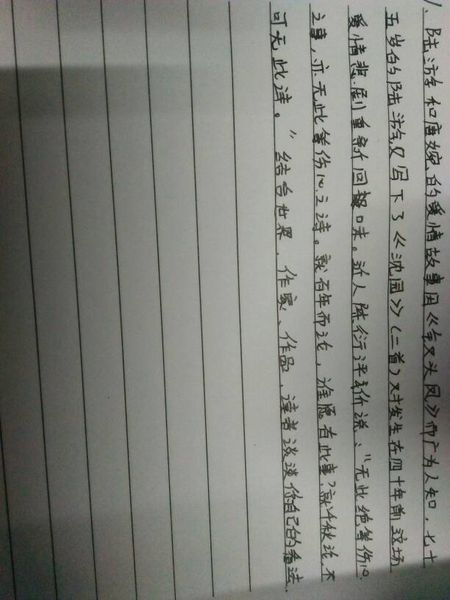 1、陆游和唐婉的爱情故事因《钗头凤》而广为人知,七十
五岁的陆游又写下了《沈园》(二首)对发生在四十年前这场
爱情悲剧重新回味。近人陈衍评价说:“无此绝等伤心
之事,亦无此等伤心之诗。就百年而论,谁愿有此事?就千秋论,不
可无此诗。”结合世界、作家、作品、读者谈谈你自己的看法.